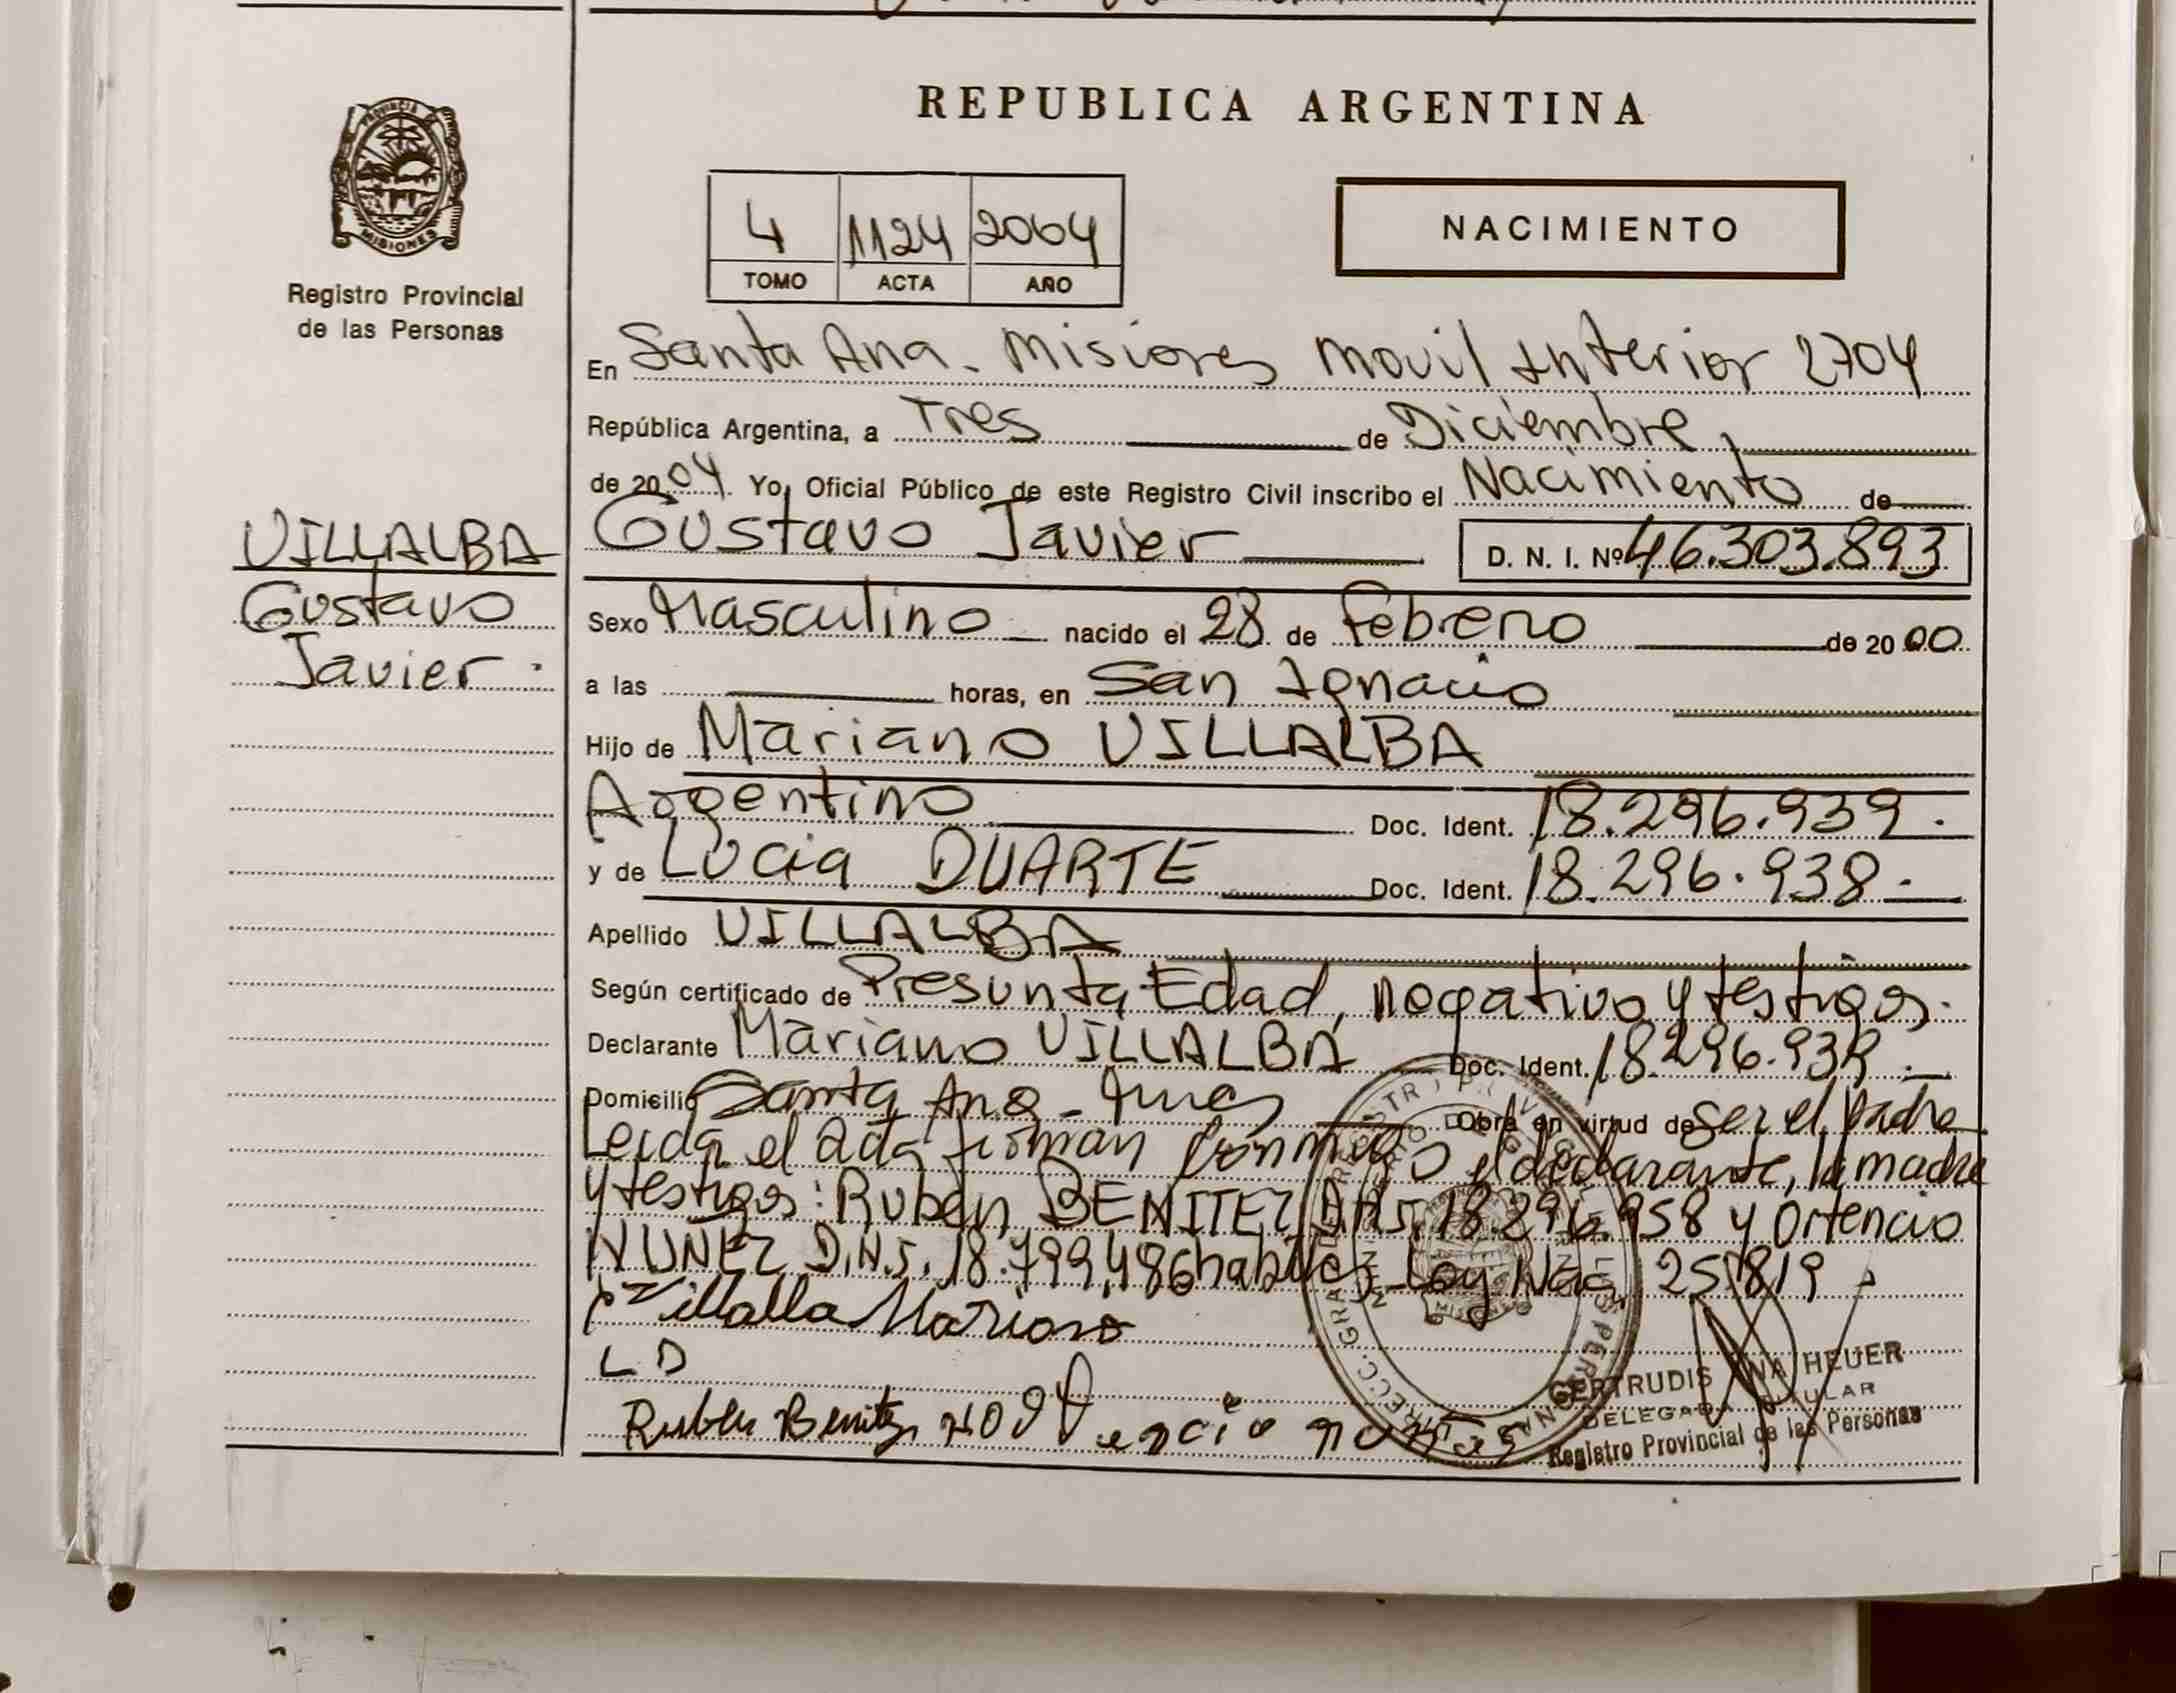 REPUBLICA ARGENTINA
PROVINCIA
MISIONES
Registro Provincial
de las Personas
4 1124 2004
TOMO ACTA AÑO
NACIMIENTO
En Santa Ana - Misiones Movil Interior 2704
República Argentina, a Tres de Diciembre
de 2004. Yo, Oficial Público de este Registro Civil inscribo el Nacimiento de
VILLALBA
Gustavo
Javier.
Gustavo Javier D. N. I. Nº 46.303.893
Sexo Masculino nacido el 28 de Febrero de 2000
a las horas, en San Ignacio
Hijo de Mariano VILLALBA
Argentino Doc. Ident. 18.296.939.
y de Lucia DUARTE Doc. Ident. 18.296.938.-
Apellido VILLALBA
Según certificado de Presunta Edad, negativo y testigos.
Declarante Mariano VILLALBA Doc. Ident. 18.296.939.-
Domicilio Santa Ana - Mnes Obra en virtud de ser el padre
Leida el acta firman conmigo el declarante, la madre
y testigos: Ruben BENITEZ D.N.I. 18.296.958 y Ortencio
NUNEZ D.N.I. 18.799.486 habiles - Ley Nac. 25.819.
Villalba Mariano
L D
Ruben Benitez
GERTRUDIS ANA HEUER
DELEGADA TITULAR
Registro Provincial de las Personas